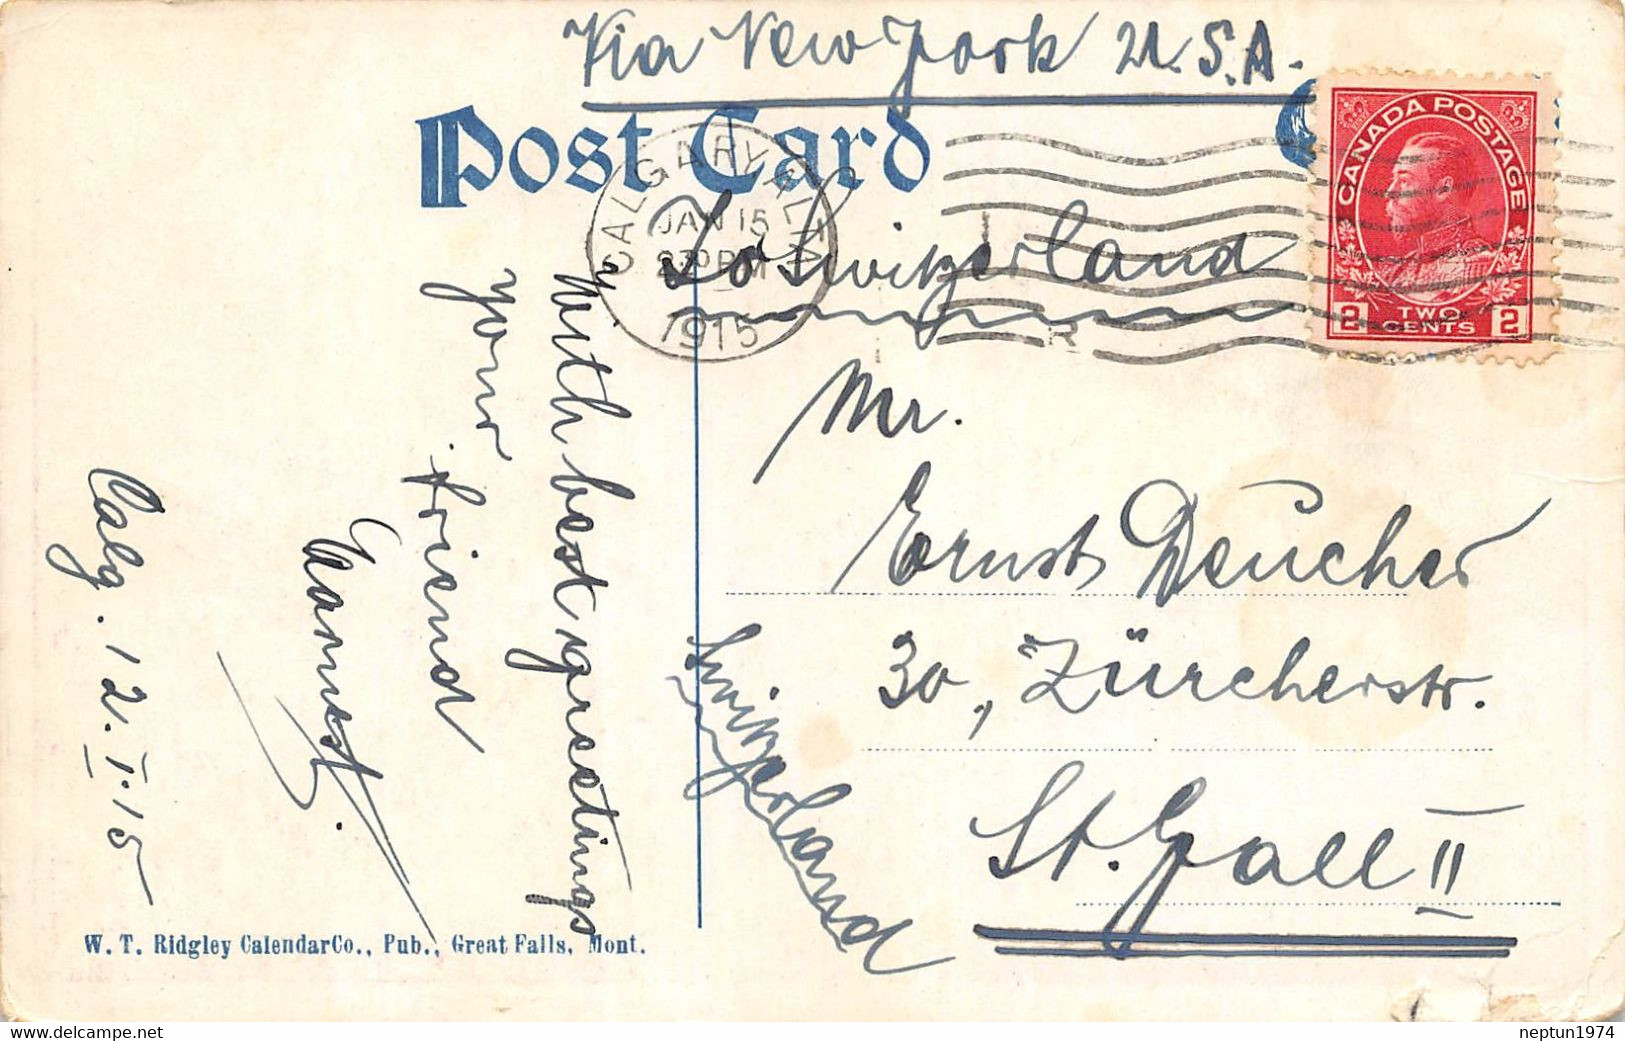 Via New York U.S.A.
Post Card
CALGARY ALTA
JAN 15
2 30 PM
1915
CANADA POSTAGE
2 TWO CENTS 2
To Switzerland
Mr.
Ernst Deucher
30, Zürcherstr.
St. Gall II
Switzerland
With best greetings
Your
friend
Calg. 12. I. 15
W. T. Ridgley Calendar Co., Pub., Great Falls, Mont.
www.delcampe.net
neptun1974